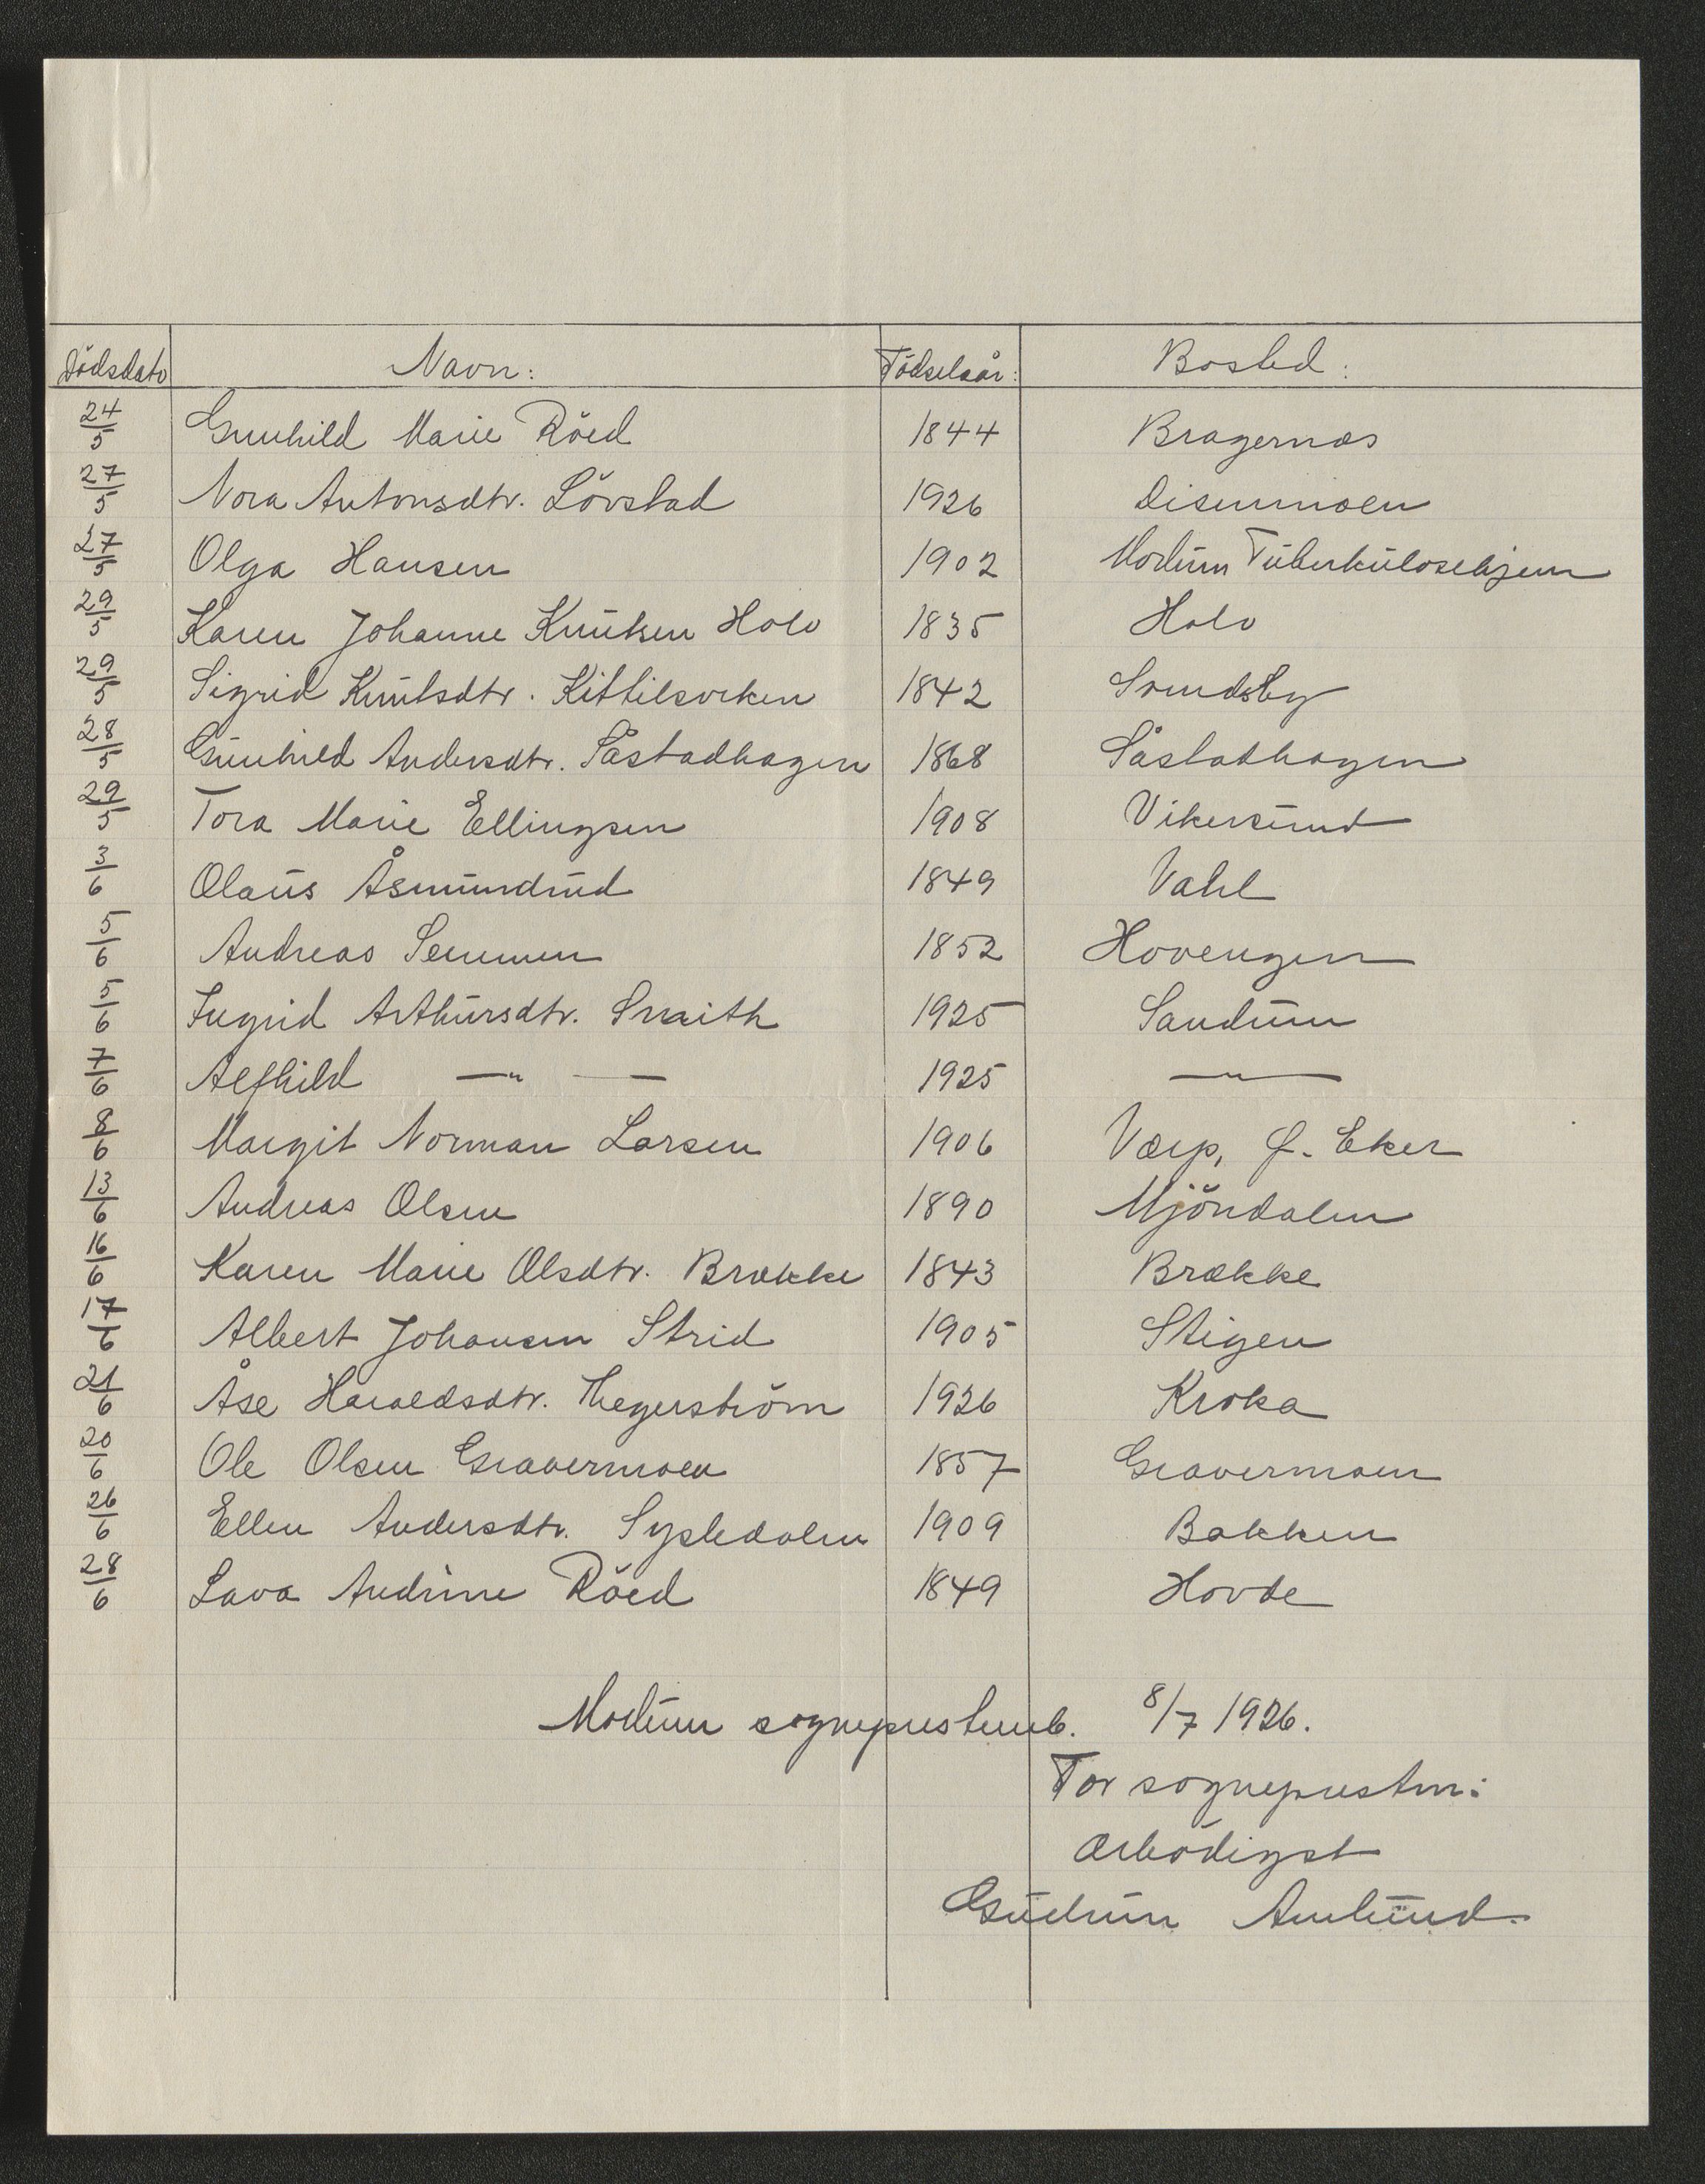 Dödsdato Navn: Födselsår: Bosted:
24/5 Gunhild Marie Röed 1844 Bragernæs
27/5 Nora Antonsdtr. Lövstad 1926 Disenmoen
27/5 Olga Hansen 1902 Modum Tuberkulosehjem
29/5 Karen Johanne Knutsen Holo 1835 Holo
29/5 Sigrid Knutsdtr. Kittilsviken 1842
28/5 Gunhild Andersdtr. Såstadhagen 1868 Såstadhagen
29/5 Tora Marie Ellingsen 1908 Vikersund
3/6 Olaus Åsmundrud 1849 Vahl
5/6 Andreas Semmen 1852 Hovengen
5/6 Ingrid Arthursdtr. Snaith 1925 Sandum
7/6 Alfhild —"— 1925 —"—
8/6 Margit Norman Larsen 1906 Værp, Ø. Eker
13/6 Andreas Olsen 1890 Mjöndalen
16/6 Karen Marie Olsdtr. Brække 1843 Brække
17/6 Albert Johansen Strid 1905 Stigen
21/6 Åse Haraldsdtr. Thegerström 1926 Kroka
20/6 Ole Olsen Gravermoen 1857 Gravermoen
26/6 Ellen Andersdtr. Sysledalen 1909 Bakken
28/6 Lava Andrine Röed 1849 Hovde
Modum sogneprestemb. 8/7 1926.
For sognepresten:
ærbödigst
Gudrun Amlund.